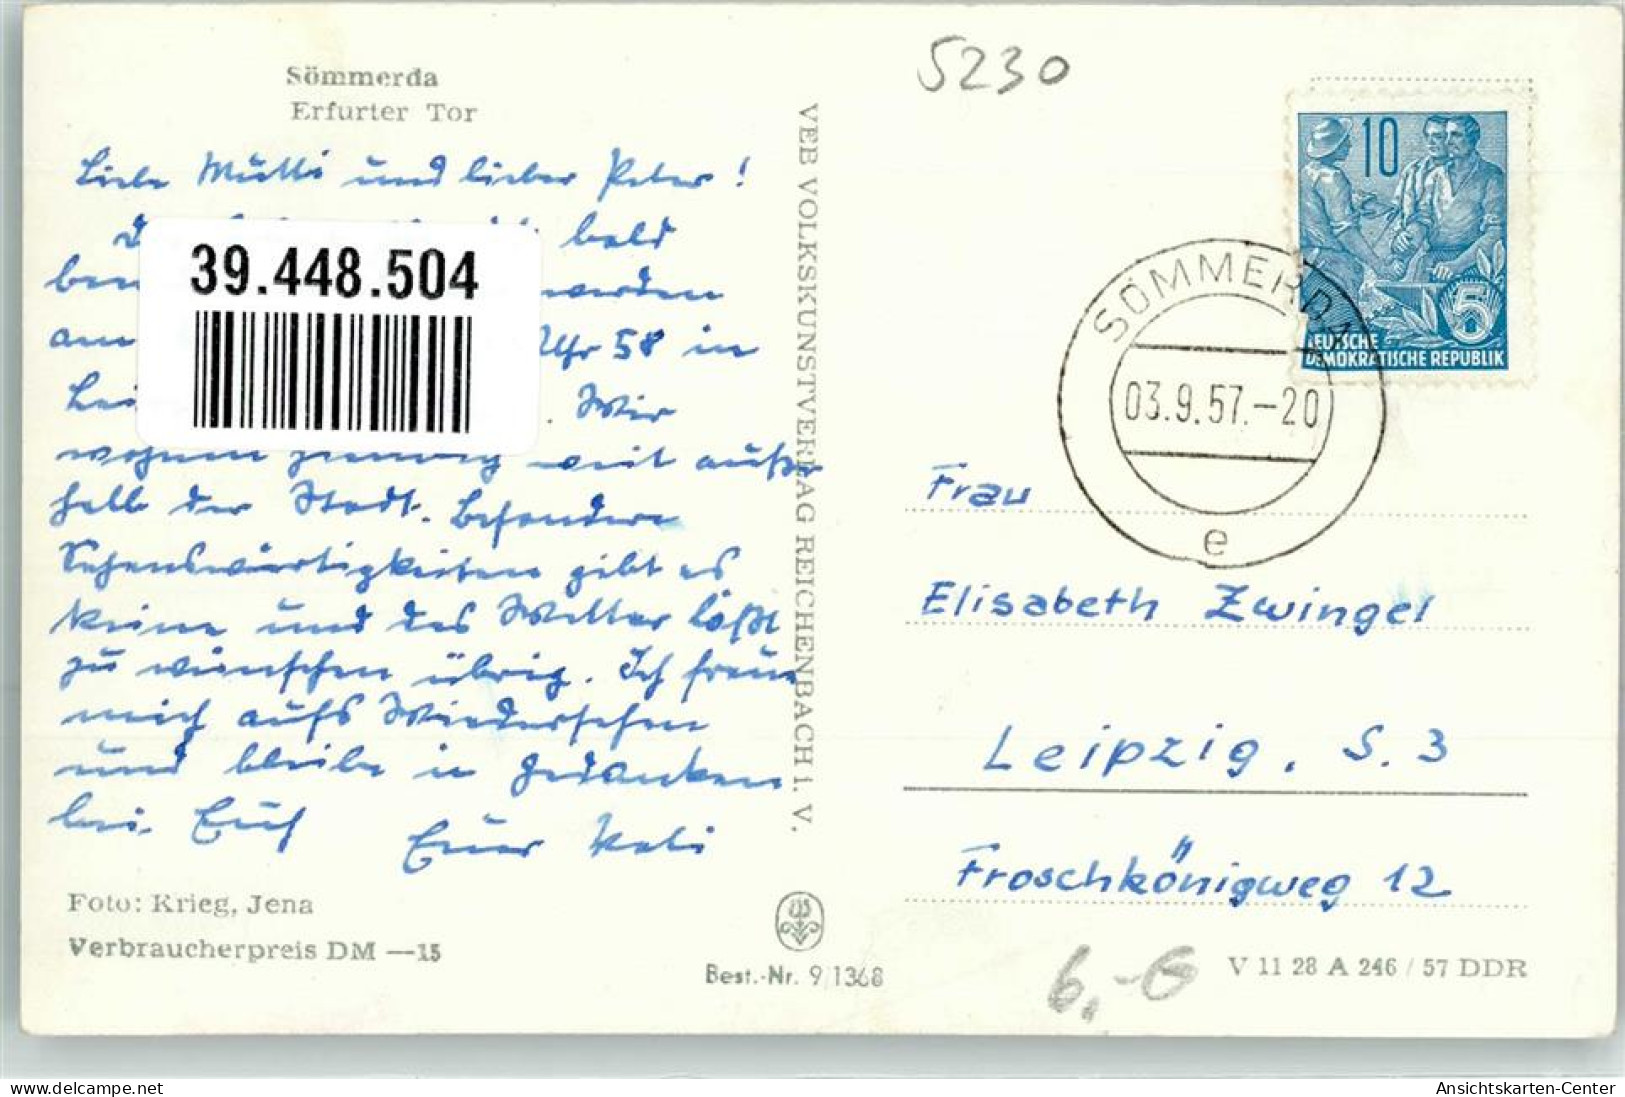 Sömmerda
Erfurter Tor
Liebe Mutti und lieber Peter!
bald
39.448.504
werden
am Uhr 58 in
Wir
wohnen ziemlich weit außer
halb der Stadt. Besondere
Sehenswürdigkeiten gibt es
keine und das Wetter läßt
zu wünschen übrig. Ich freue
mich aufs Wiedersehen
und bleibe in Gedanken
bei Euch Euer
Foto: Krieg, Jena
Verbraucherpreis DM —15
VEB VOLKSKUNSTVERLAG REICHENBACH i. V.
Best.-Nr. 9/1368
5230
10
5
DEUTSCHE
DEMOKRATISCHE REPUBLIK
SÖMMERDA
03.9.57.-20
e
Frau
Elisabeth Zwingel
Leipzig, S. 3
Froschkönigweg 12
6,-€
V 11 28 A 246 / 57 DDR
www.delcampe.net
Ansichtskarten-Center